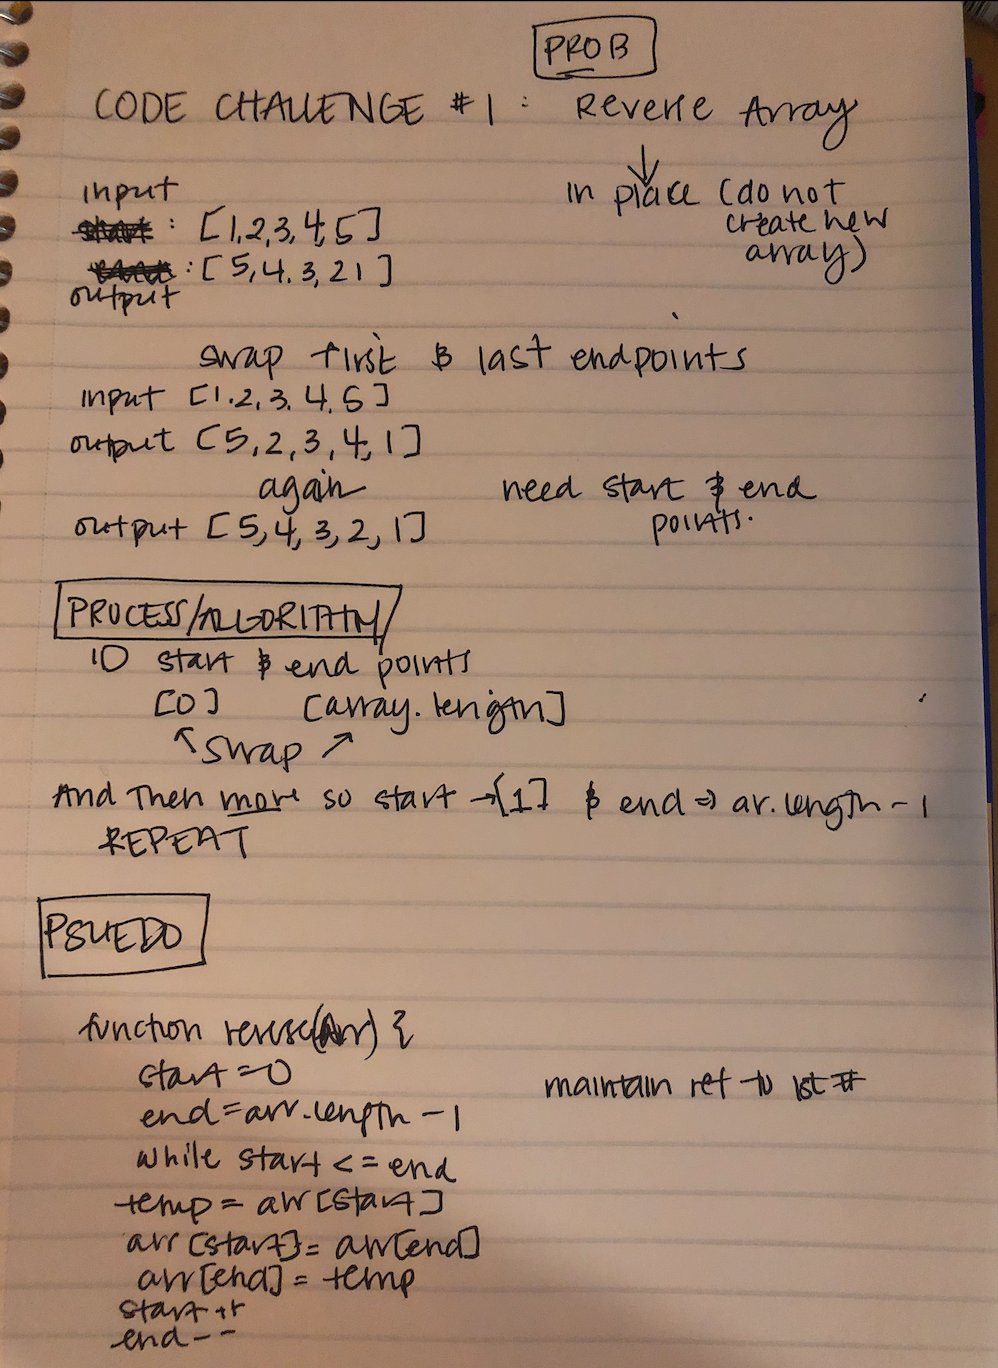 PROB
CODE CHALLENGE #1: Reverse Array
↓
in place (do not
create new
array)
input
: [1,2,3,4,5]
: [5,4.3,21]
output
swap first & last endpoints
input [1.2,3.4.5]
output [5,2,3,4,1]
again
need start & end
points.
output [5,4,3,2,1]
PROCESS/ALGORITHM
ID start & end points
[0] [array.length]
↖ swap ↗
And Then move so start →[1] & end => ar.length-1
REPEAT
PSUEDO
function reverse(Arr) {
start=0
maintain ref to 1st #
end=arr.length-1
while start <= end
temp = arr[start]
arr[start]= arr[end]
arr[end] = temp
start++
end--